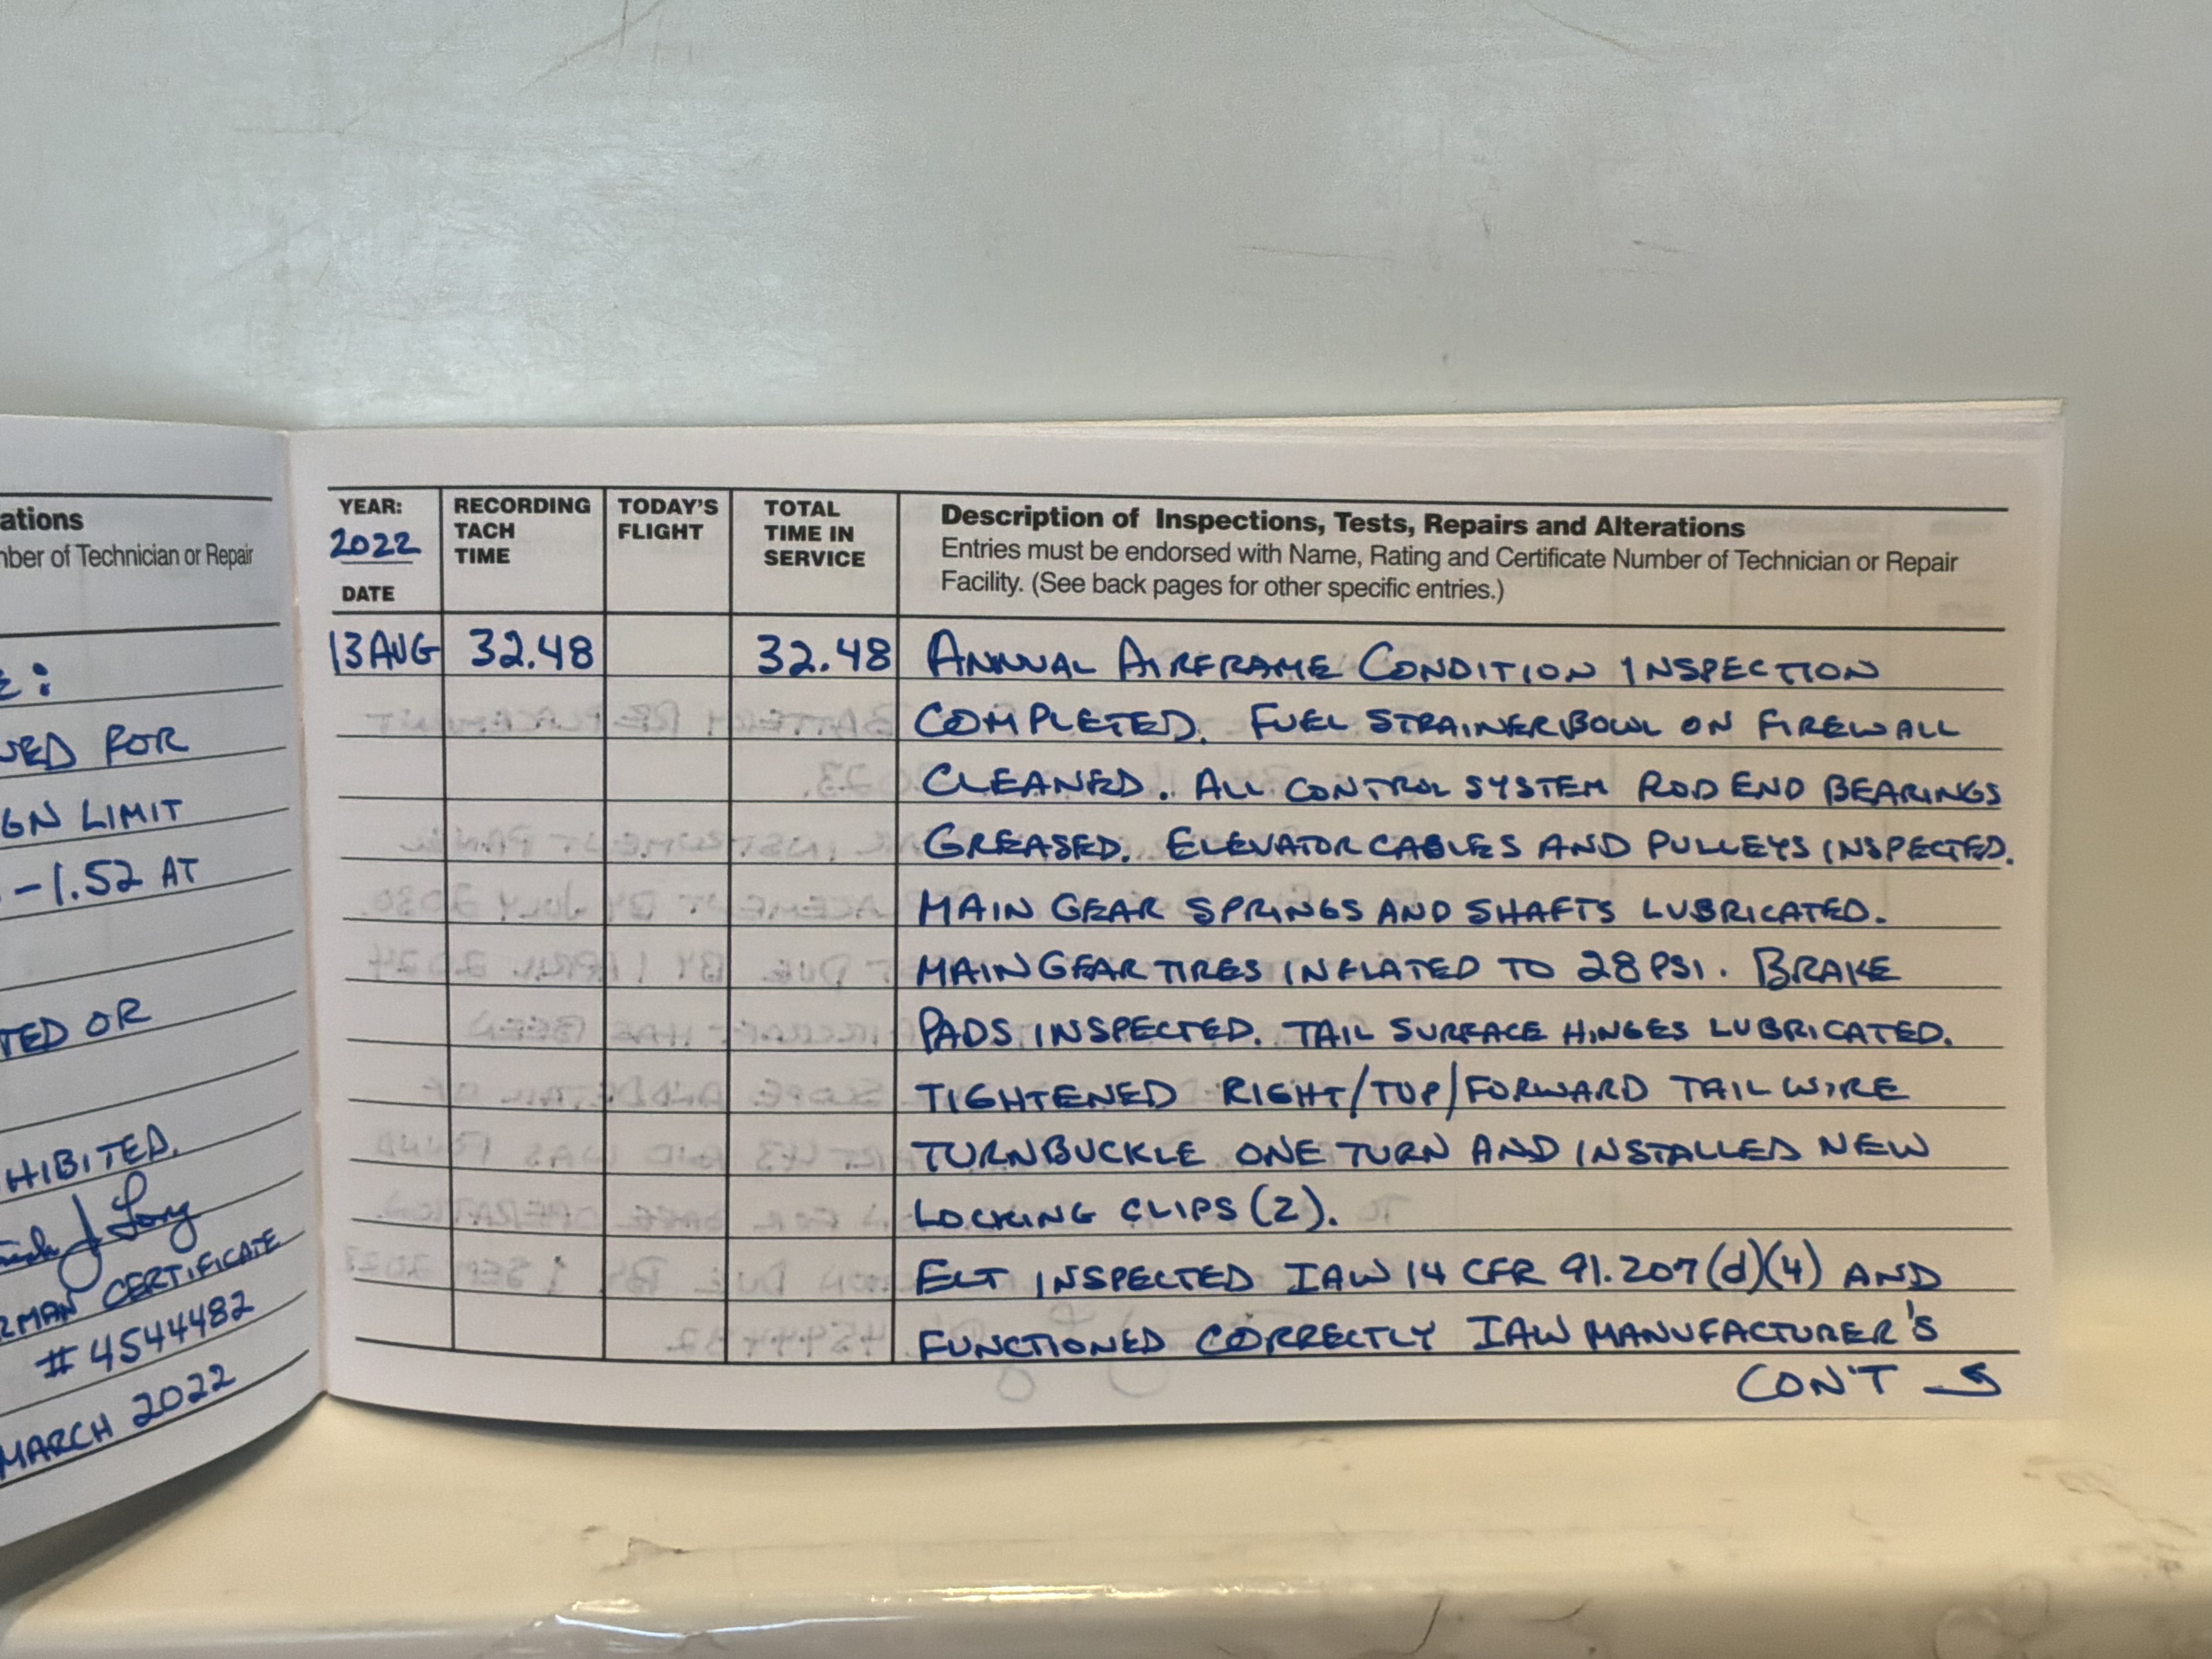 ations
nber of Technician or Repair
E:
FOR
GN LIMIT
-1.52 AT
TED OR
HIBITED.
CERTIFICATE
#4544482
MARCH 2022
YEAR:
2022
DATE
RECORDING
TACH
TIME
TODAY'S
FLIGHT
TOTAL
TIME IN
SERVICE
Description of Inspections, Tests, Repairs and Alterations
Entries must be endorsed with Name, Rating and Certificate Number of Technician or Repair
Facility. (See back pages for other specific entries.)
13 AUG 32.48 32.48 ANNUAL AIRFRAME CONDITION INSPECTION
COMPLETED. FUEL STRAINER BOWL ON FIREWALL
CLEANED. ALL CONTROL SYSTEM ROD END BEARINGS
GREASED. ELEVATOR CABLES AND PULLEYS INSPECTED.
MAIN GEAR SPRINGS AND SHAFTS LUBRICATED.
MAIN GEAR TIRES INFLATED TO 28 PSI. BRAKE
PADS INSPECTED. TAIL SURFACE HINGES LUBRICATED.
TIGHTENED RIGHT/TOP/FORWARD TAIL WIRE
TURNBUCKLE ONE TURN AND INSTALLED NEW
LOCKING CLIPS (2).
ELT INSPECTED IAW 14 CFR 91.207(d)(4) AND
FUNCTIONED CORRECTLY IAW MANUFACTURER'S
CON'T